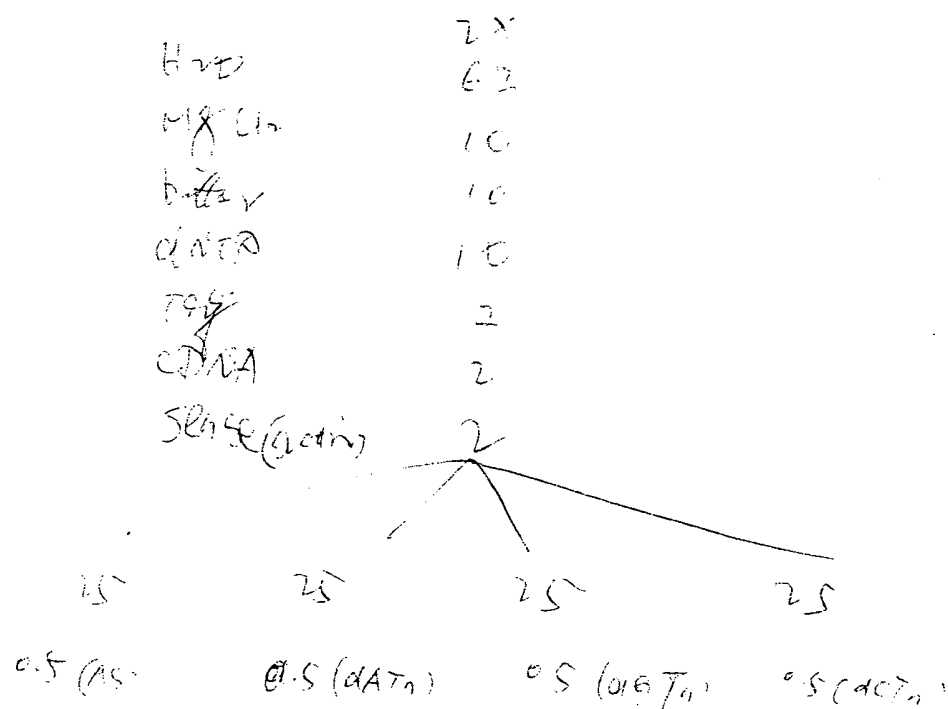 2X
H2O 62
MgCl2 10
buffer 10
dNTP 10
Taq 2
cDNA 2
Sense (actin) 2
25 25 25 25
0.5 (AS) 0.5 (dATn) 0.5 (dGTn) 0.5 (dCTn)